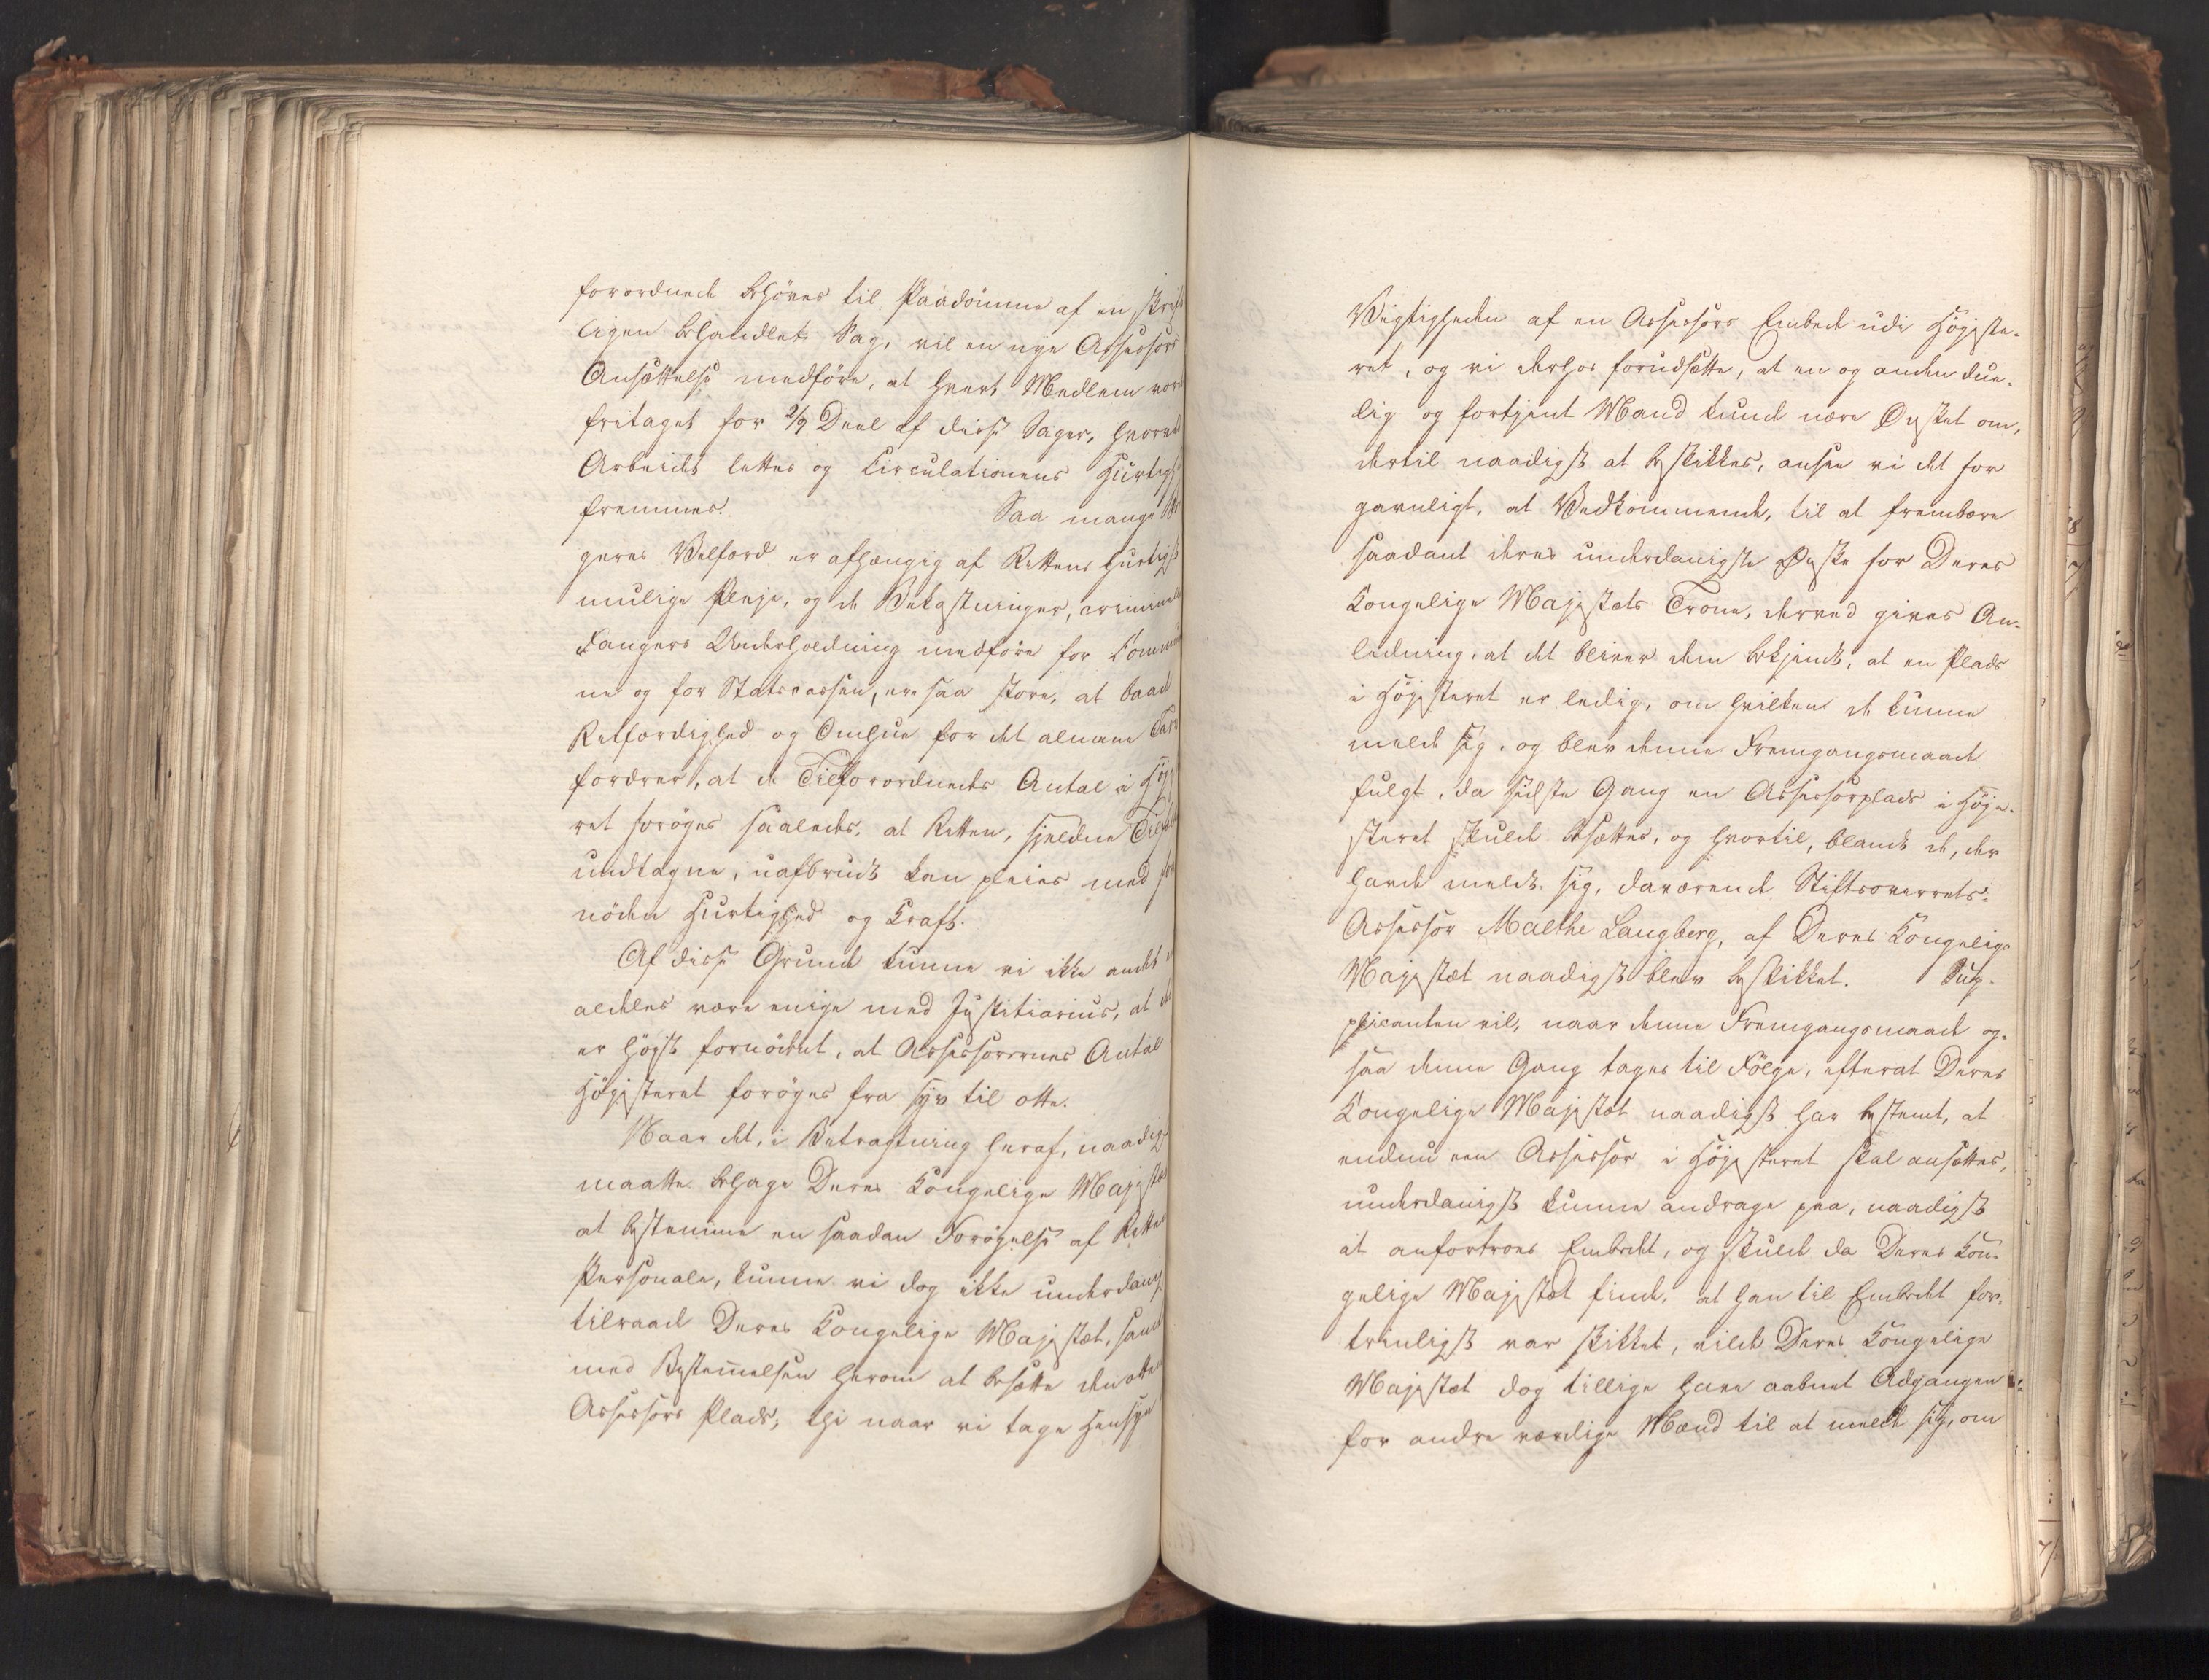 forordnede behöves til Paadömme af en skrift
ligen behandlet Sag, vil en nye Assessors
Ansættelse medföre, at hvert Medlem vor
fritaget for 2/9 Deel af disse Sager, hvorved
Arbeidet lettes og Circulationens Hurtigh
fremmes. Saa mange Bor
geres Velfærd er afhængig af Rettens hurtigst
mulige Pleje, og de Bekostninger, criminelle
Fangers Underholdning medföre for Commu
ne og for Statscassen, ere saa store, at baade
Retfærdighed og Omhue for det almene Tarv
fordrer, at de Tilforordnedes Antal i Höje
ret foröges saaledes, at Retten, sjeldne Tilfælde
undtagne, uafbrudt kan pleies med for
nöden Hurtighed og Kraft.
Af disse Grunde kunne vi ikke andet e
aldeles være enige med Justitiarius, at d
er höjst fornödent, at Assessorernes Antal
Höjesteret foröges fra syv til otte.
Naar det, i Betragtning heraf, naadig
maatte behage Deres Kongelige Majestæt
at bestemme en saadan Forögelse af Rette
Personale, kunne vi dog ikke underdanig
tilraade Deres Kongelige Majestæt, samt
med Bestemmelsen herom at besætte den otte
Assessors Plads; thi naar vi tage Hensyn
Vigtigheden af en Assessors Embede udi Höjeste-
ret, og vi derhos forudsætte, at en og anden due-
lig og fortjent Mand kunde nære Önsket om,
dertil naadigst at beskikkes, ansee vi det for
gavnligt, at Vedkommende, til at frembære
saadant deres underdanigste Önske for Deres
Kongelige Majestæts Trone, derved gives An-
ledning, at det bliver dem bekjendt, at en Plads
i Höjesteret er ledig, om hvilken de kunne
melde sig, og blev denne Fremgangsmaade
fulgt, da sidste Gang en Assessorplads i Höje-
steret skulde besættes, og hvortil, blandt de, der
havde meldt sig, daværende Stiftsoverrets-
Assessor Malthe Langberg, af Deres Kongelige
Majestæt naadigst blev beskikket. Sup-
plicanten vil, naar denne Fremgangsmaade og-
saa denne Gang tages til Fölge, efterat Deres
Kongelige Majestæt naadigst har bestemt, at
endnu een Assessor i Höjesteret skal ansættes,
underdanigst kunne andrage paa, naadigst
at anfortroes Embedet, og skulde da Deres Kon-
gelige Majestæt finde, at han til Embedet for-
trinligst var skikket, vilde Deres Kongelige
Majestæt dog tillige have aabnet Adgangen
for andre værdige Mænd til at melde sig, om